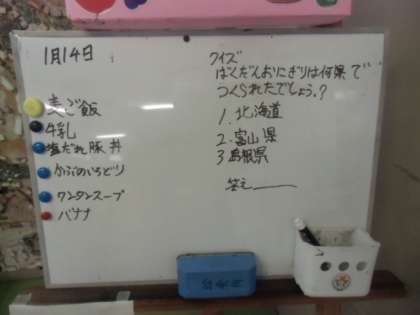 1月14日
麦ご飯
牛乳
塩だれ豚丼
かぶのいろどり
ワンタンスープ
バナナ
クイズ
ばくだんおにぎりは何県で
つくられたでしょう？
1. 北海道
2. 富山県
3 島根県
答え